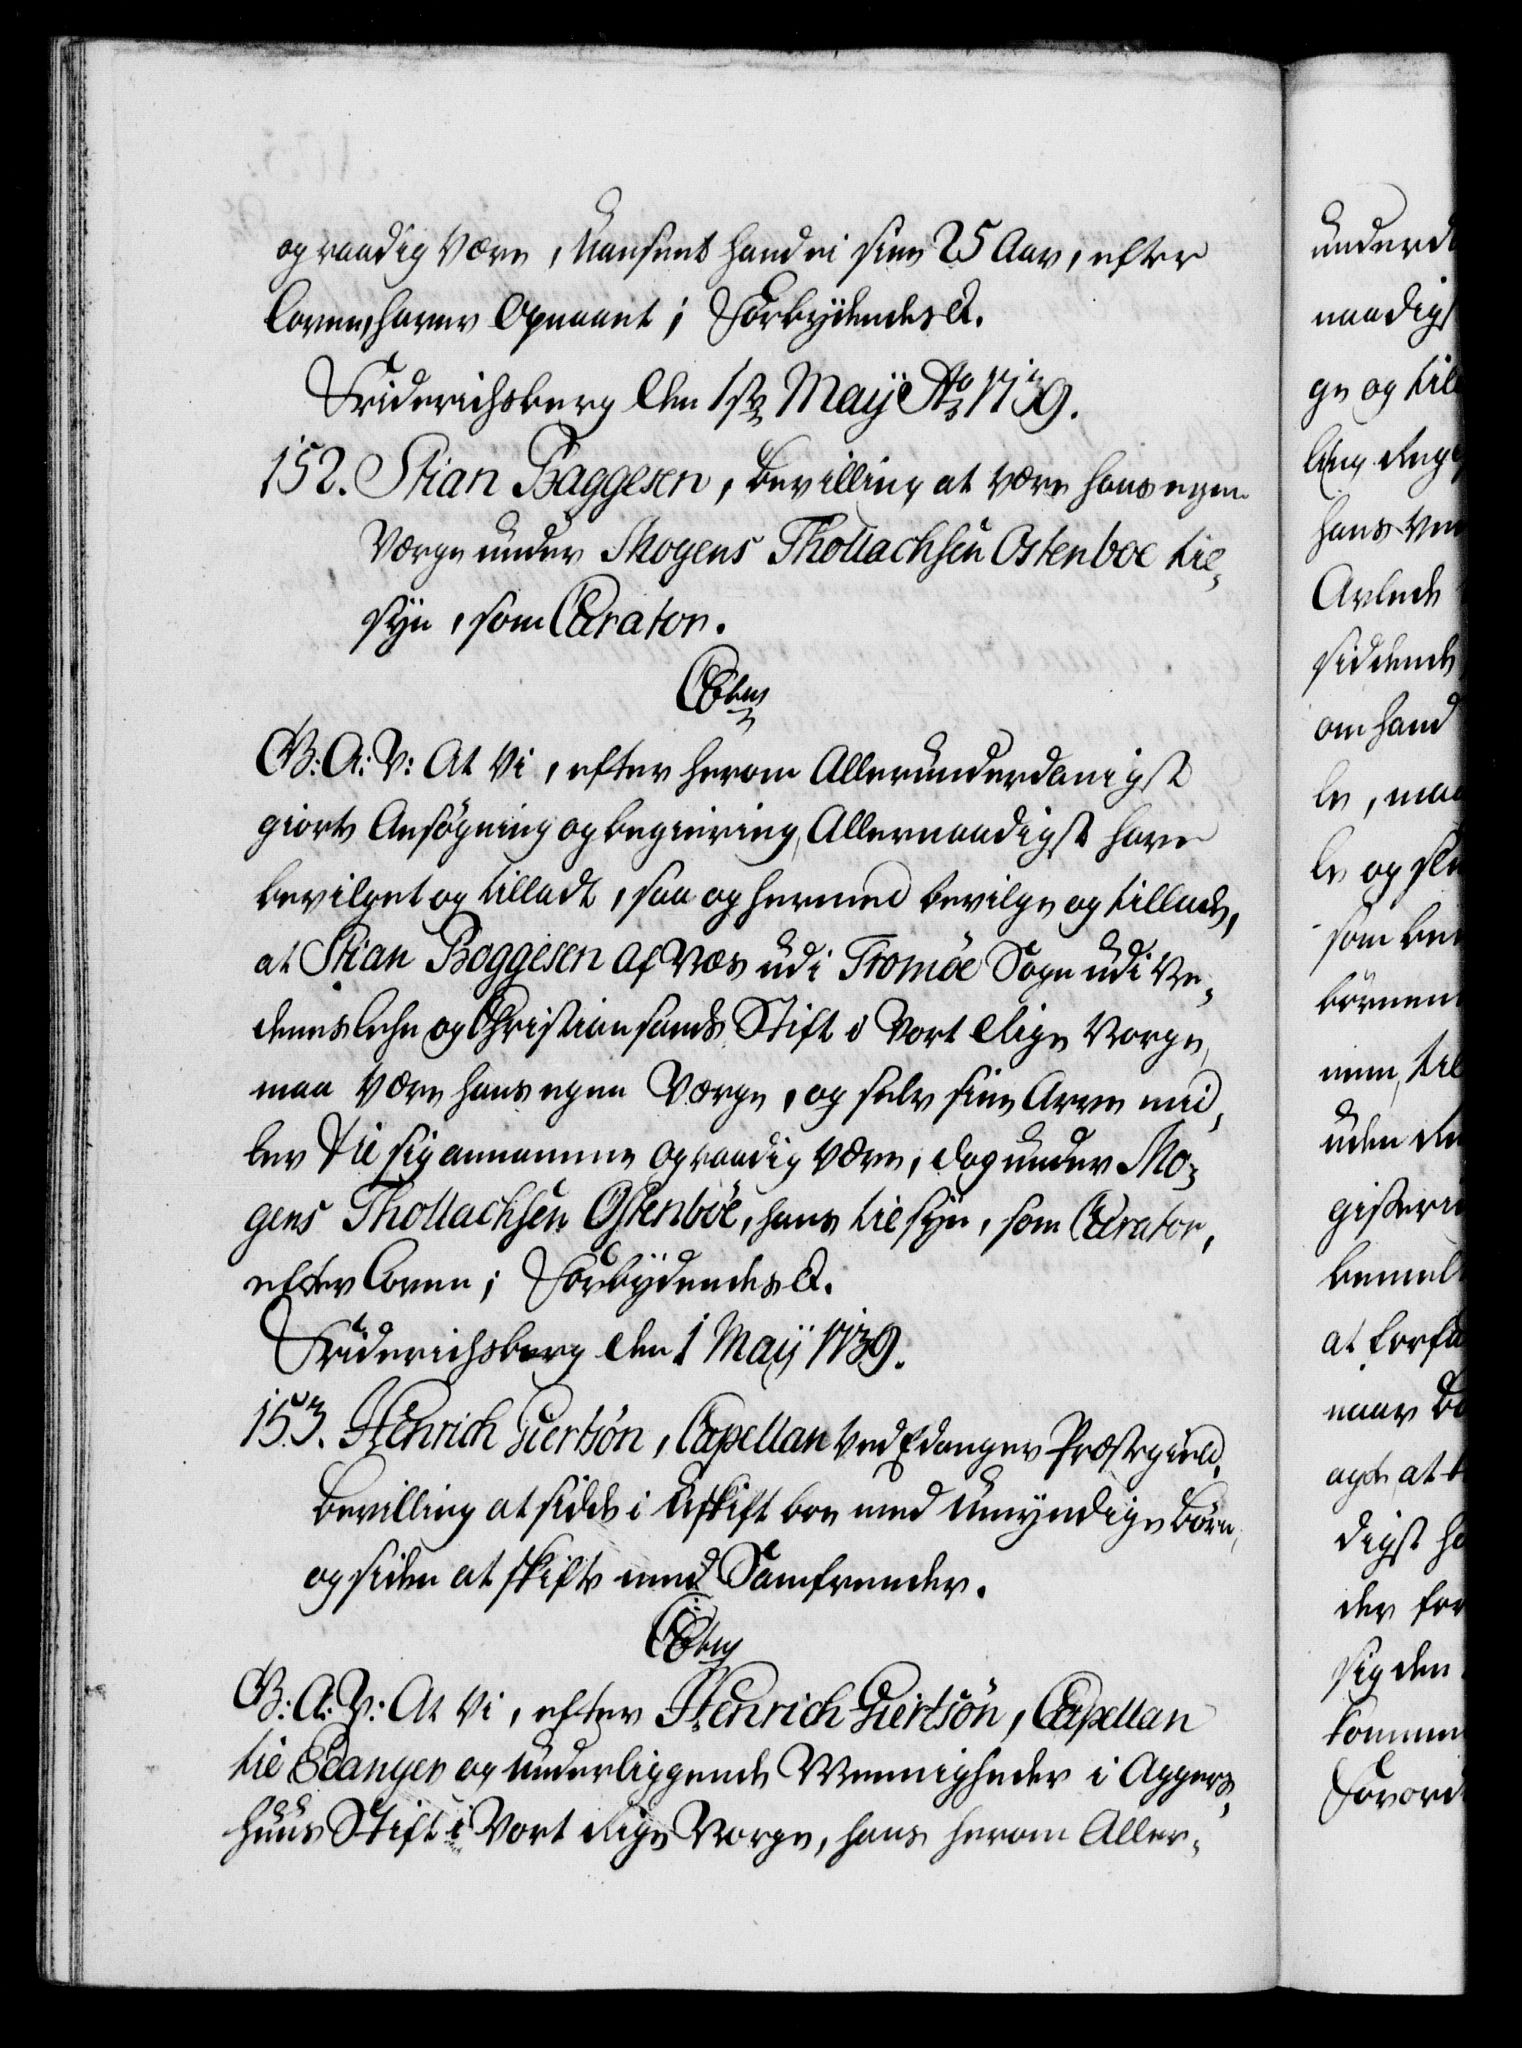 og raadig være, Uanseet hand ei sine 25 Aar, efter
Loven, haver Opnaaet; Forbydendes &.
Friderichsberg den 1ste Maÿ Ao 1739.
152. Stian Baggesen, bevilling at være hans egen
Værge under Mogens Thollachsen Ostenboe til-
syn, som Curator.
C6tus
G: A: V: At Vi, efter herom Allerunderdanigst
giorte Ansøgning og begiering, Allernaadigst have
bevilget og tilladt, saa og hermed bevilge og tillade,
at Stian Baggesen af Næs udi Tromöe Sogn udi Ne-
denes Lehn og Christiansands Stift i Vort Rige Norge,
maa være hans egen Værge, og selv sine Arve mid-
ler til sig annamme og raadig være, dog under Mo-
gens Thollachsen Ostenböe, hans tilsyn, som Curator,
efter Loven; Forbydendes &.
Friderichsberg den 1 Maÿ 1739.
153. Henrich Giertsön, Capellan ved Edanger Præstegield,
bevilling at sidde i Uskift boe med Umyndige Børn,
og siden at skifte med Samfrender.
C6tus
G: A: V: At Vi, efter Henrich Giertsön, Capellan
til Edanger og underliggende Meenigheder i Aggers-
huus Stift i Vort Rige Norge, hans herom Aller-
underd
naadigs
ge og till
ling
hans
Avlede
siddende
om hand
le, maa
le og
som
børnene
nem, til
uden
gisteri
bemel
at forfa
naar
agt, at
digst ha
der for
sig den
komme
Forord